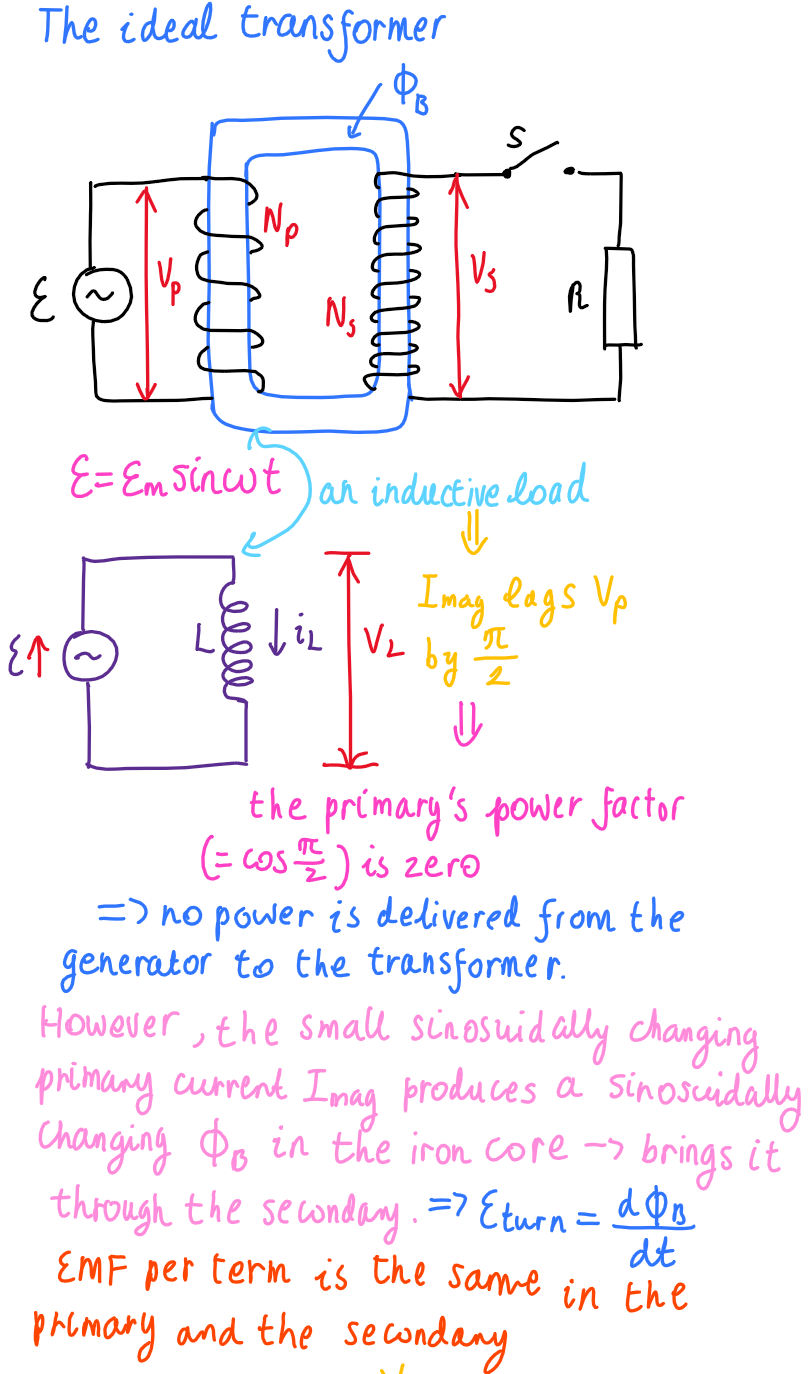 The ideal transformer
Φ_B
S
N_p
V_p
V_s
ε
R
N_s
ε = ε_m sin ωt
an inductive load
⇓
I_mag lags V_p
by π/2
L
i_L
V_L
ε↑
⇓
the primary's power factor
(= cos π/2) is zero
=> no power is delivered from the
generator to the transformer.
However, the small sinosuidally changing
primary current I_mag produces a sinosuidally
changing Φ_B in the iron core → brings it
through the secondary. => ε_turn = dΦ_B/dt
EMF per term is the same in the
primary and the secondary